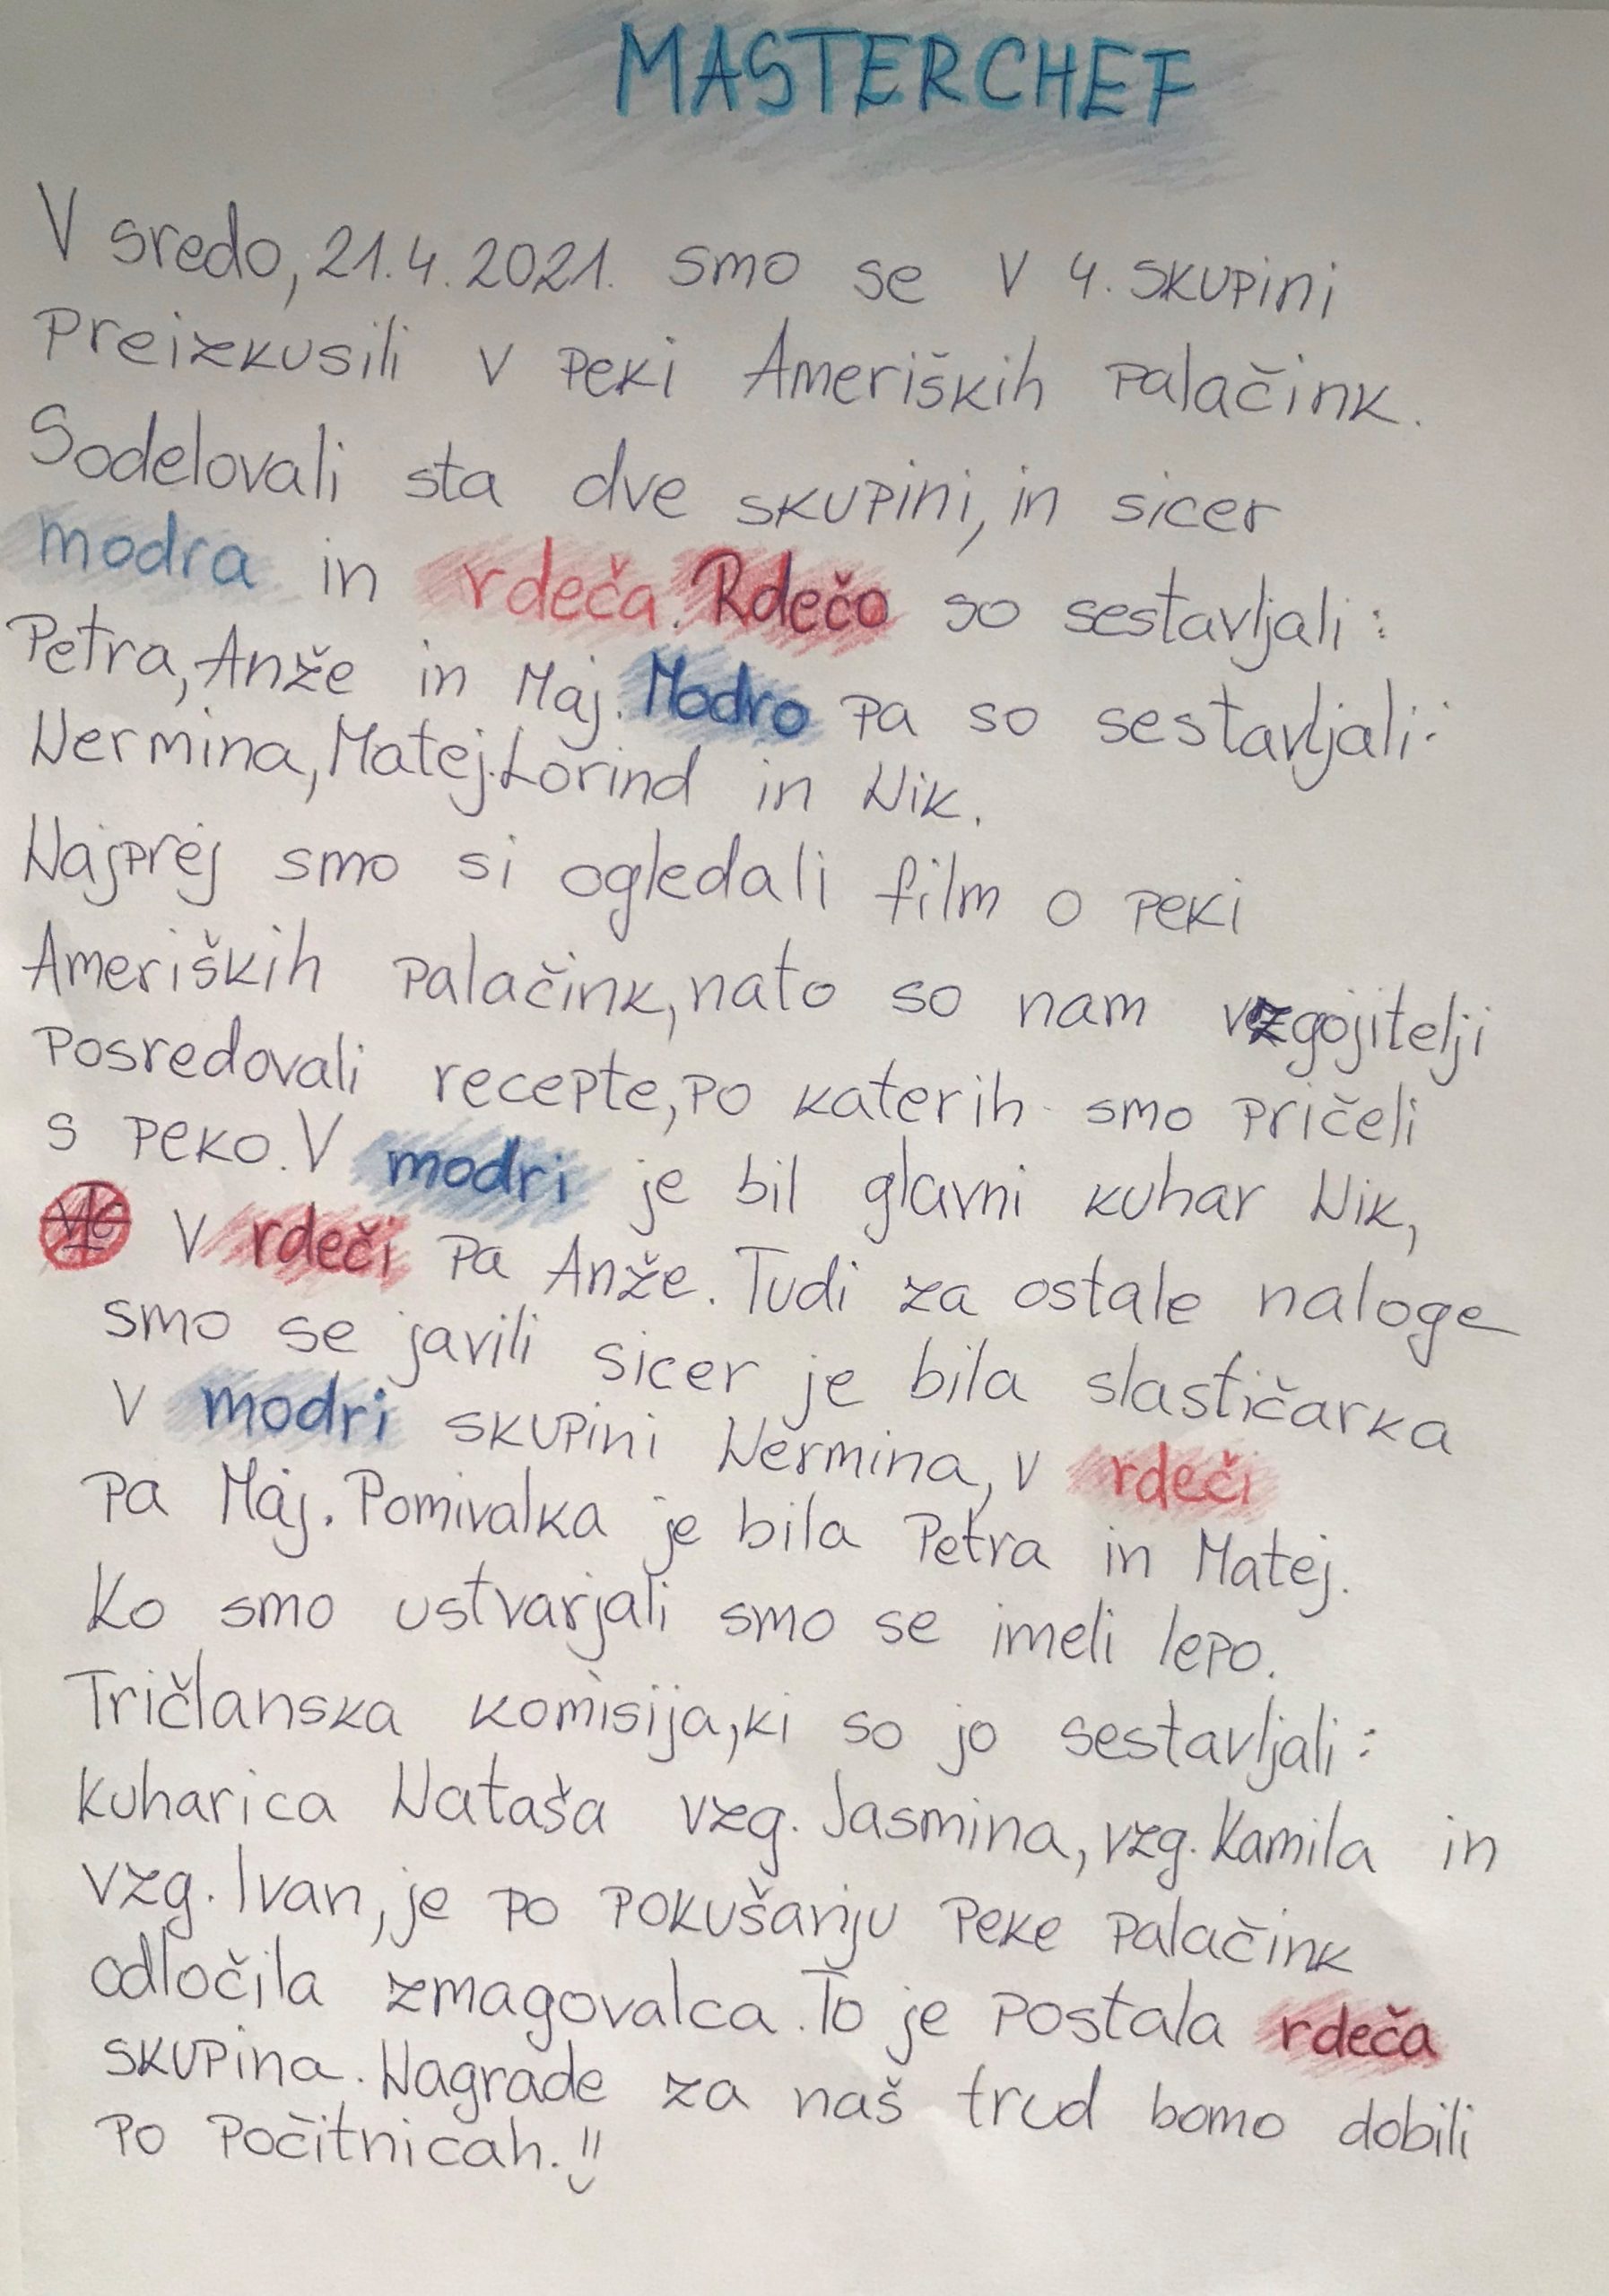 MASTERCHEF
V sredo, 21.4.2021. smo se v 4. skupini
Preizkusili v peki Ameriških palačink.
Sodelovali sta dve skupini, in sicer
modra in rdeča. Rdečo so sestavljali:
Petra, Anže in Maj. Modro pa so sestavljali:
Nermina, Matej. Lorind in Nik.
Najprej smo si ogledali film o peki
Ameriških palačink, nato so nam vzgojitelji
posredovali recepte, po katerih smo pričeli
s peko. V modri je bil glavni kuhar Nik,
V rdeči pa Anže. Tudi za ostale naloge
smo se javili sicer je bila slastičarka
v modri skupini Nermina, v rdeči
pa Maj. Pomivalka je bila Petra in Matej.
Ko smo ustvarjali smo se imeli lepo.
Tričlanska komisija, ki so jo sestavljali:
kuharica Nataša vzg. Jasmina, vzg. Kamila in
vzg. Ivan, je po pokušanju peke palačink
odločila zmagovalca. To je postala rdeča
skupina. Nagrade za naš trud bomo dobili
po počitnicah.!!